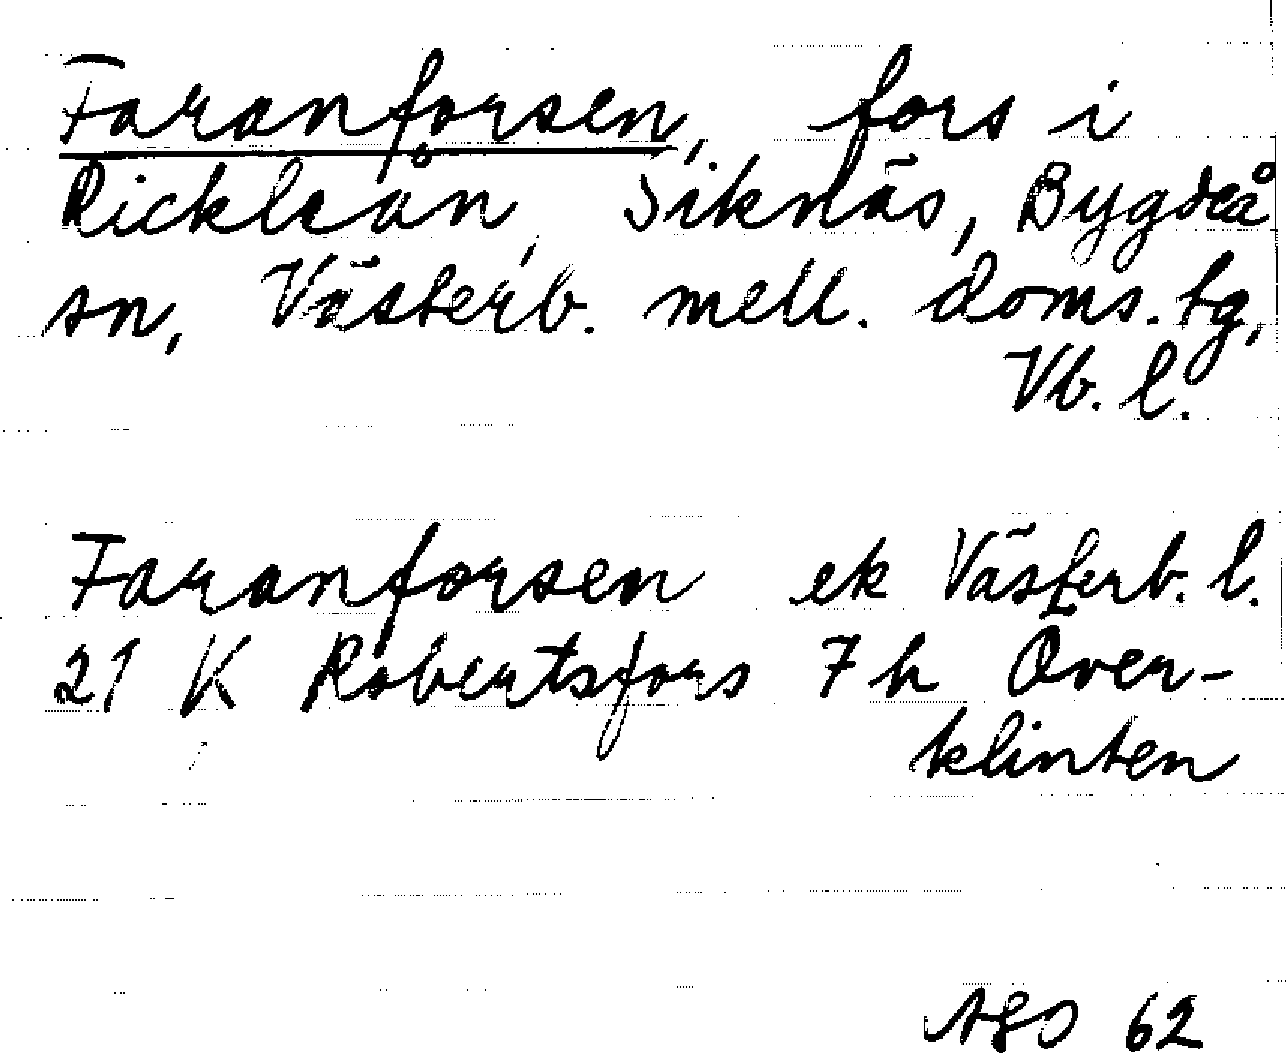 Faranforsen, fors i
Rickleån, Siknäs, Bygdeå
sn, Västerb. mell. doms. tg,
Vb. l.
Faranforsen ek Västerb. l.
21 K Robertsfors 7 h Över-
klinten
62